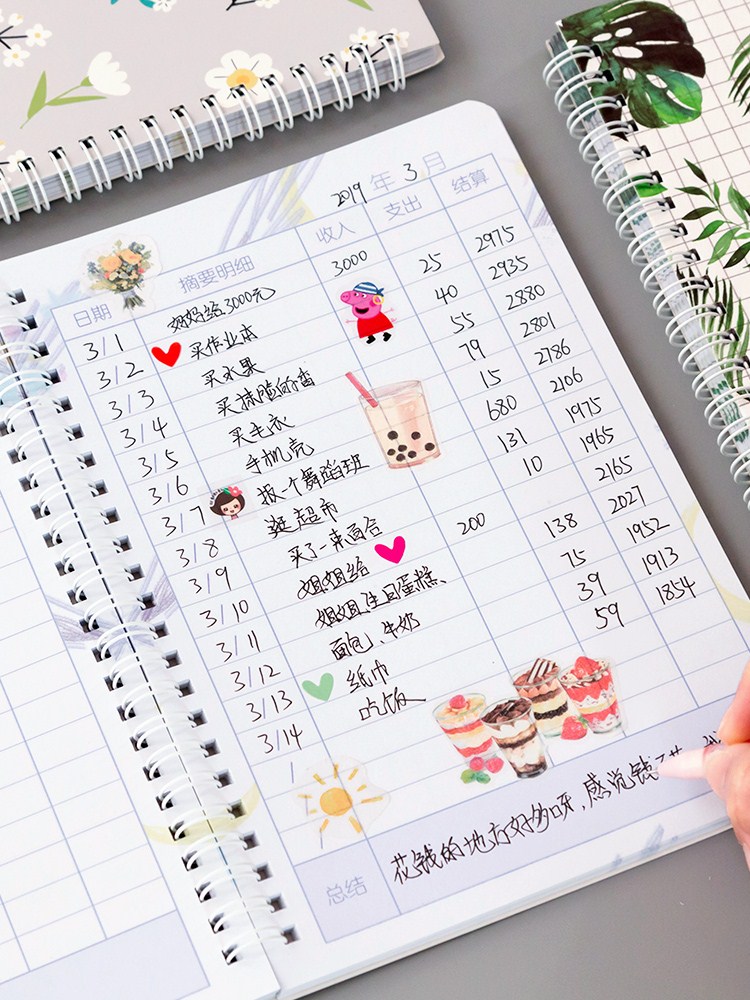 2019 年 3 月
日期 摘要明细 收入 支出 结算
3/1 妈妈给3000元 3000
3/2 买作业本 25 2975
3/3 买水果 40 2935
3/4 买 55 2880
3/5 买毛衣 79 2801
3/6 手机壳 15 2786
3/7 报一个舞蹈班 680 2106
3/8 逛超市 131 1975
3/9 买了一束百合 10 1965
3/10 姐姐给 200 2165
3/11 姐姐生日蛋糕、 138 2027
3/12 面包、牛奶 75 1952
3/13 纸巾 39 1913
3/14 吃饭 59 1854
/
总结 花钱的地方好多呀,感觉钱